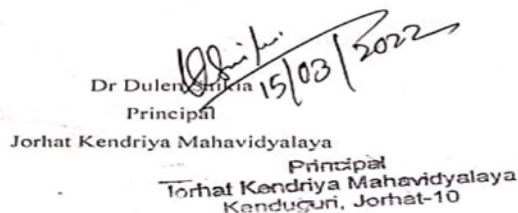 15/03/2022
Dr Dulen
Principal
Jorhat Kendriya Mahavidyalaya
Principal
Jorhat Kendriya Mahavidyalaya
Kenduguri, Jorhat-10